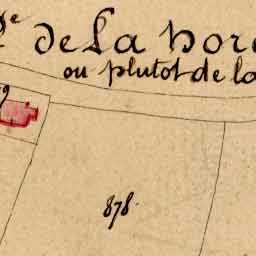 de La hor
ou plutot de la
878.